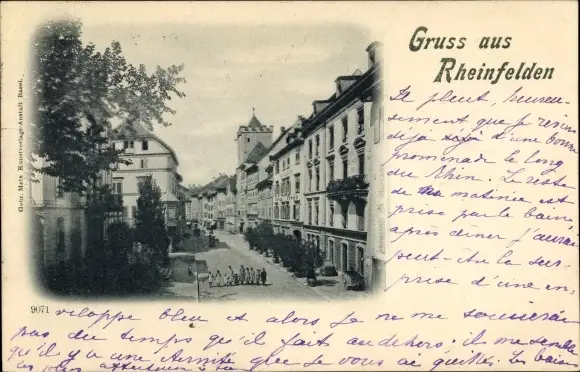 Gruss aus
Rheinfelden
Gebr. Metz Kunstverlags-Anstalt Basel.
9071
Il pleut, heureu-
sement que je reviens
déjà d'une bonne
promenade le long
du Rhin. Le reste
de ma matinée est
prise par le bain,
après dîner j'aurai
peut-être la sur-
prise d'une en-
veloppe bleu et alors je ne me soucierai
pas du temps qu'il fait au dehors; il me semble
qu'il y a une éternité que je vous ai quittés. Les bains